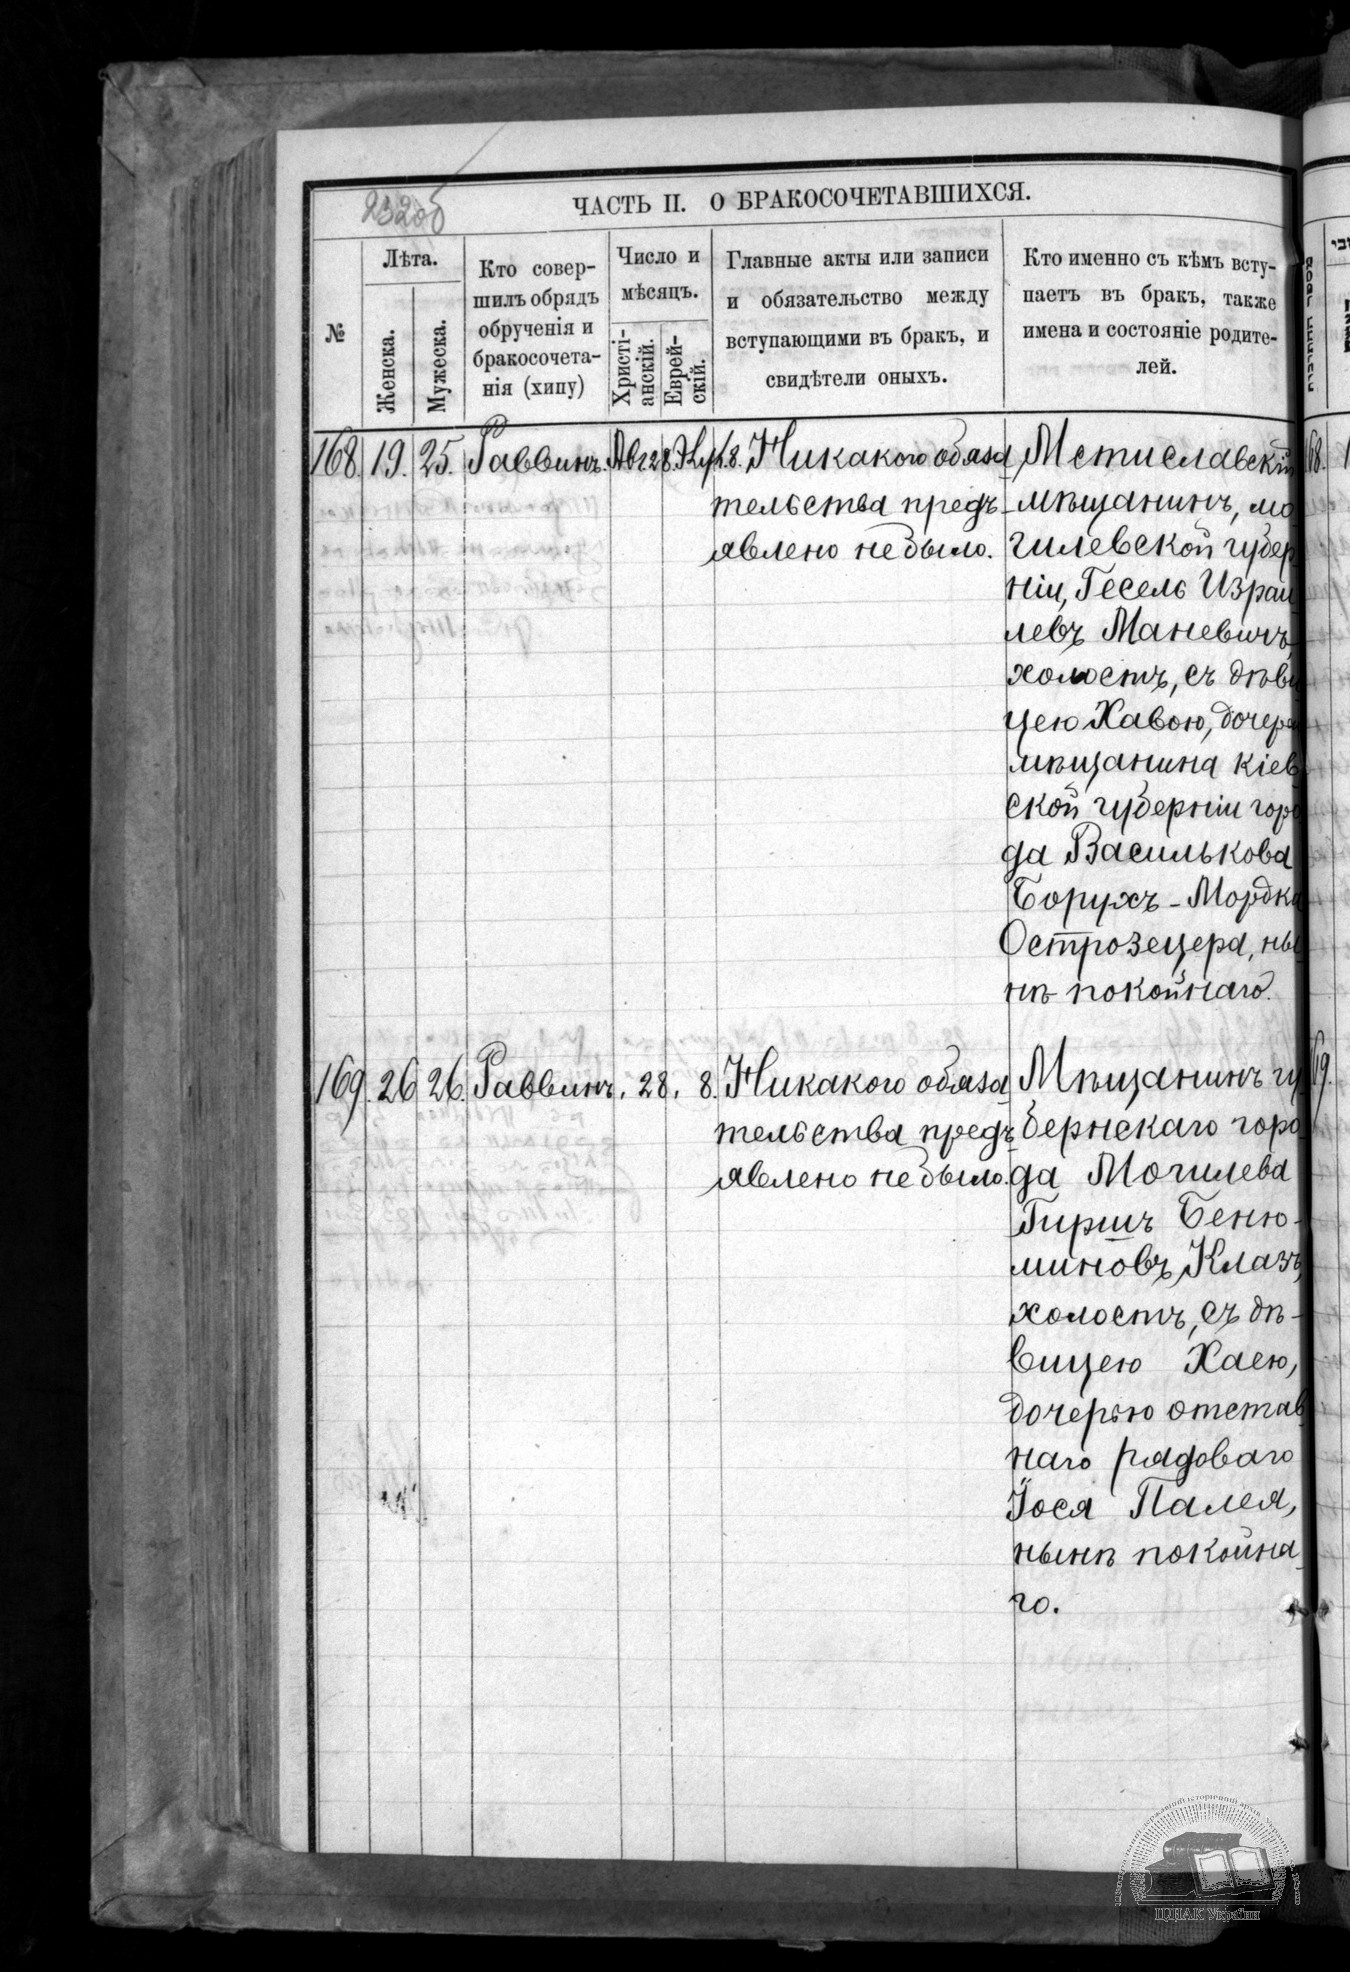 232об
ЧАСТЬ II. О БРАКОСОЧЕТАВШИХСЯ.
№
Лѣта.
Женска.
Мужеска.
Кто совер-
шилъ обрядъ
обрученія и
бракосочета-
нія (хипу)
Число и
мѣсяцъ.
Христі-
анскій.
Еврей-
скій.
Главные акты или записи
и обязательство между
вступающими въ бракъ, и
свидѣтели оныхъ.
Кто именно съ кѣмъ всту-
паетъ въ бракъ, также
имена и состояніе родите-
лей.
168. 19. 25. Раввинъ. Авг. 28. 18. Никакого обяза
тельства предъ-
явлено не было.
Мстиславскій
мѣщанинъ, мо
гилевской губер
ніи, Гесель Израи
левъ Маневичъ,
холостъ, съ дѣви
цею Хавою, дочерью
мѣщанина Кіев
ской губерніи горо
да Василькова
Борухъ-Мордка
Острозецера, ны
нѣ покойнаго.
169. 26 26. Раввинъ. 28. 8. Никакого обяза
тельства предъ
явлено не было.
Мѣщанинъ гу
бернскаго горо
да Могилева
Гиршъ Беню-
миновъ Клазъ,
холостъ, съ дѣ-
вицею Хаею,
дочерью отстав
наго рядоваго
Іося Палея,
нынѣ покойна
го.
168.
169.
ЦДІАК України